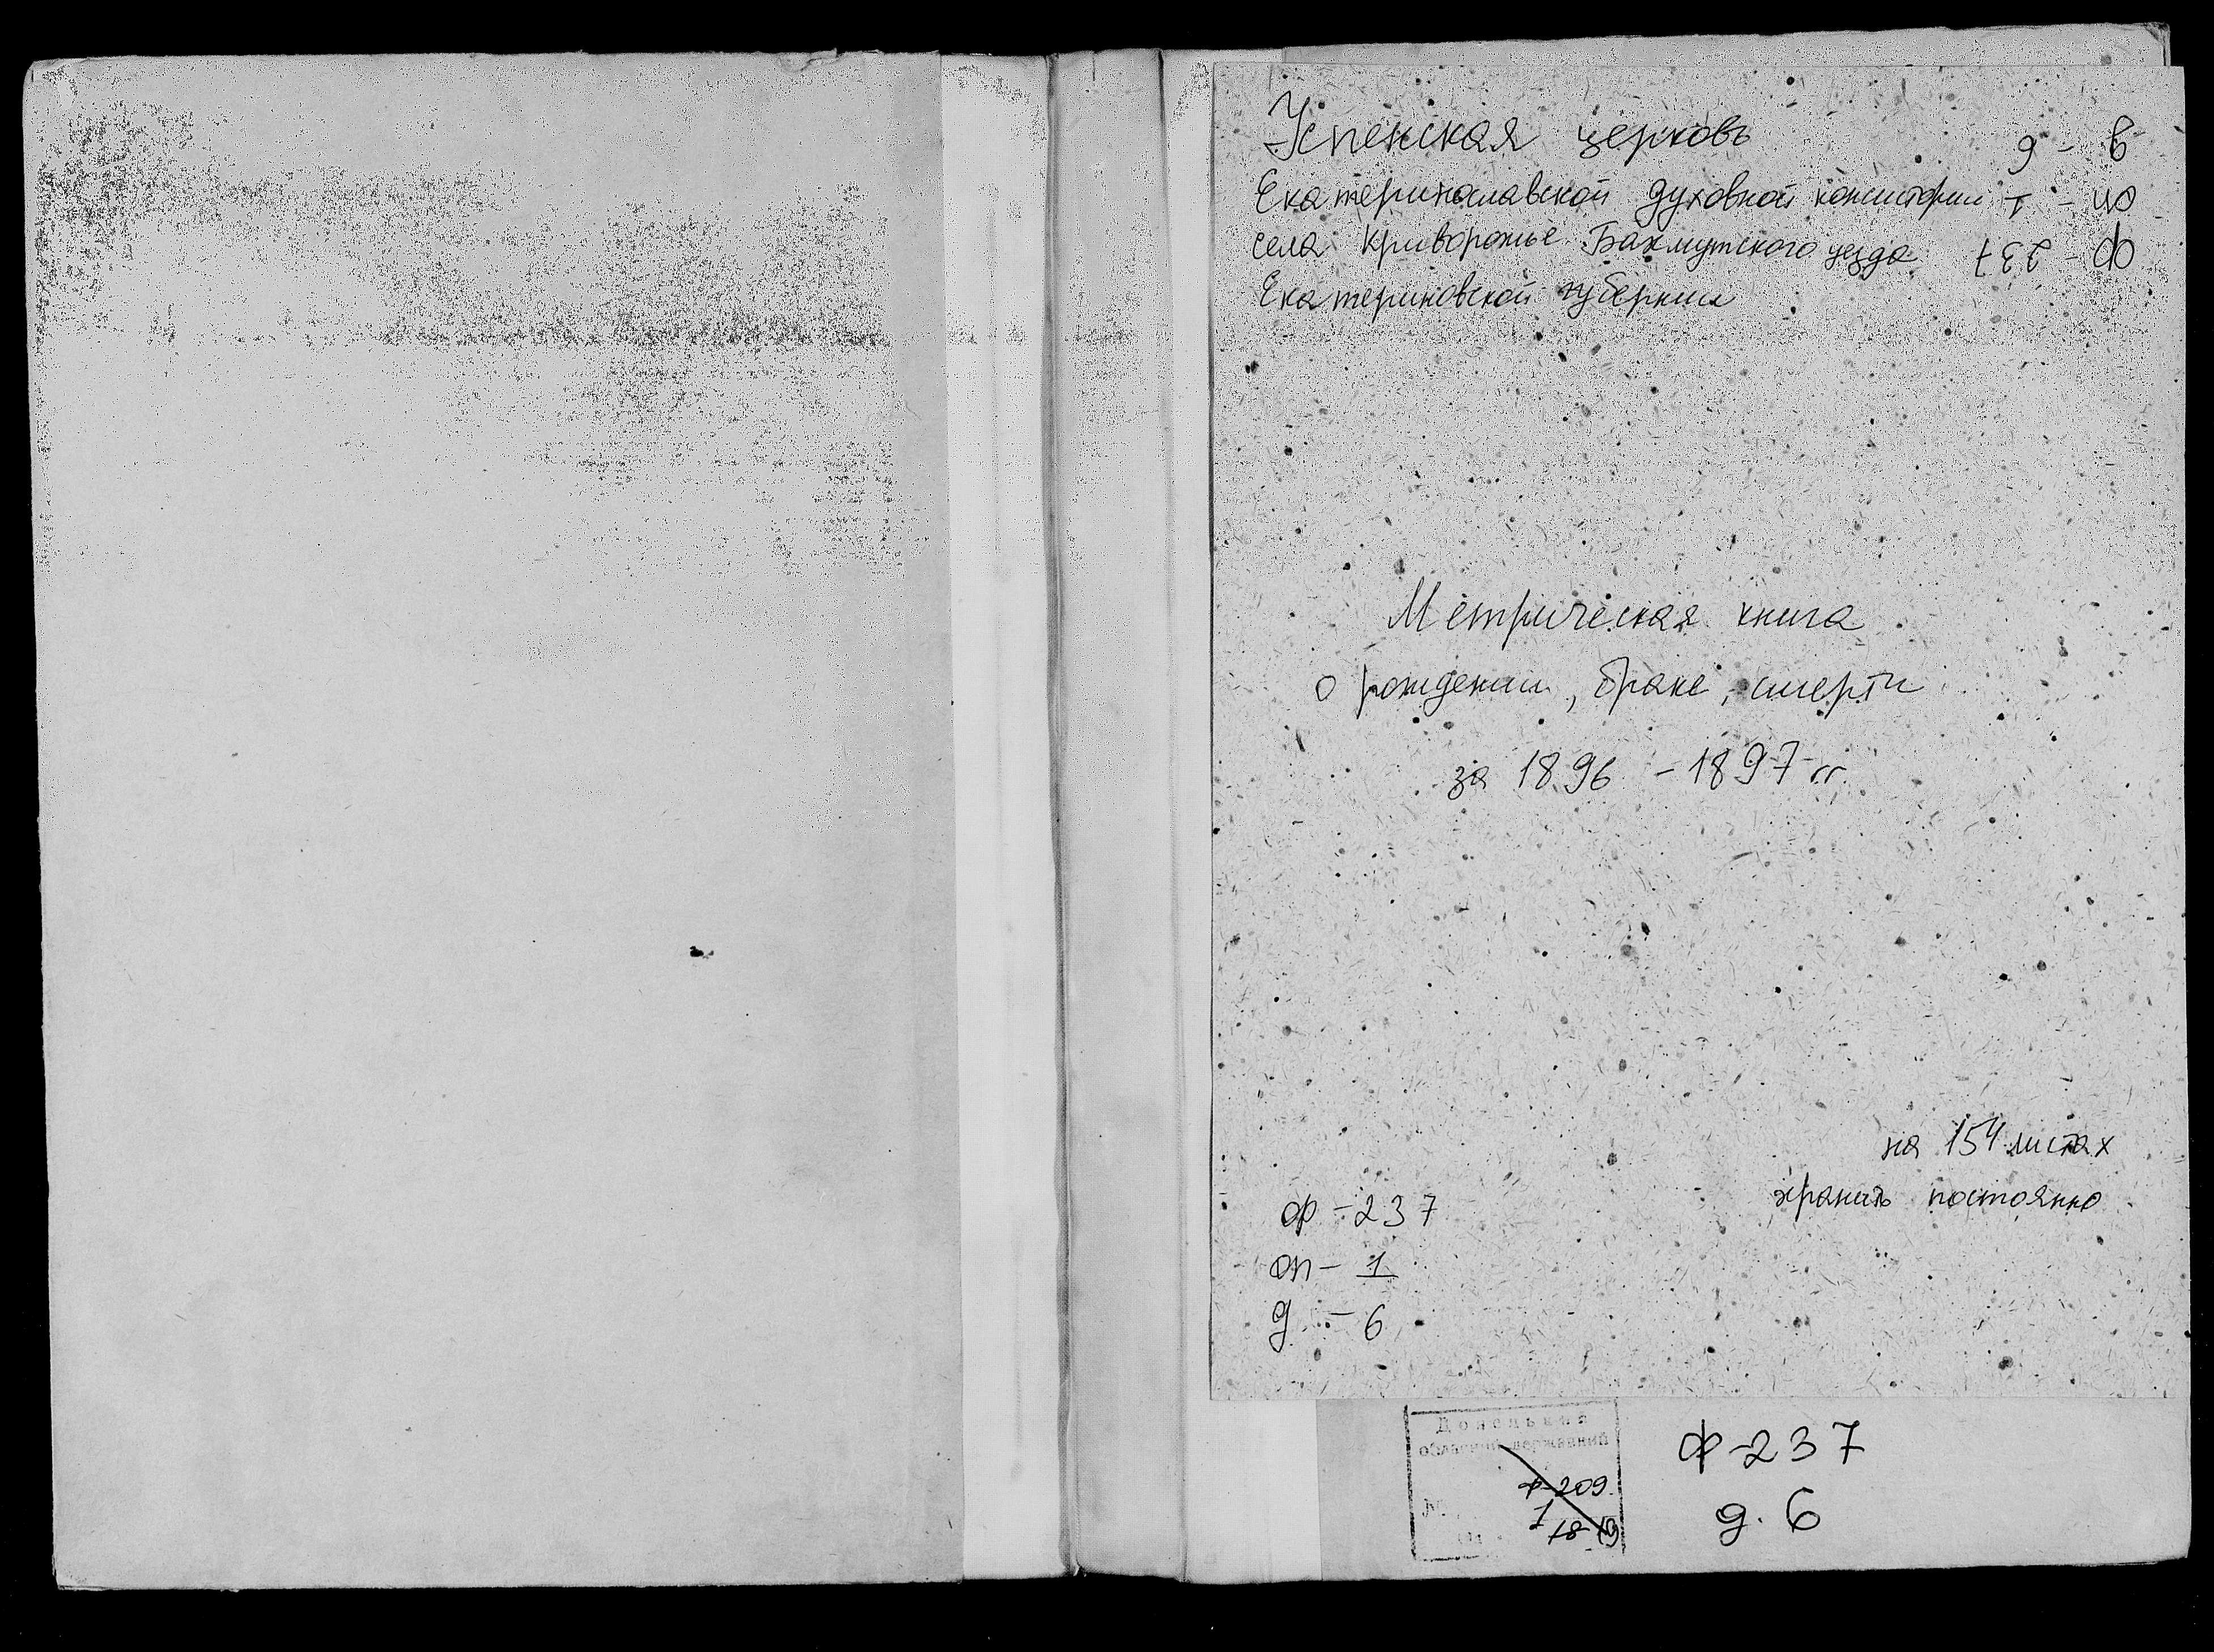 Успенская церковь
Екатеринославской духовной консистории
села Криворожье Бахмутского уезда
Екатериновской губернии
д - 6
оп - 1
Ф - 237
Метрическая книга
о рождении, браке, смерти
за 1896 - 1897 гг.
на 154 листах
хранить постоянно
ф - 237
оп - 1
д - 6
Донецький
обласний державний
ф-209
1
18-19
Ф-237
д. 6